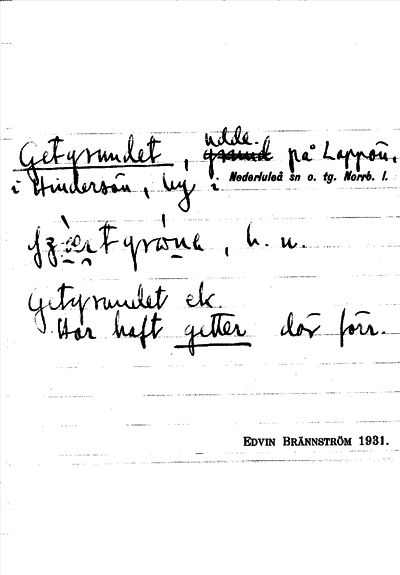 Getgrundet, udde på Lappön,
i Hindersön, by i Nederluleå sn o. tg. Norrb. l.
n. u.
Getgrundet ek.
Har haft getter där förr.
EDVIN BRÄNNSTRÖM 1931.